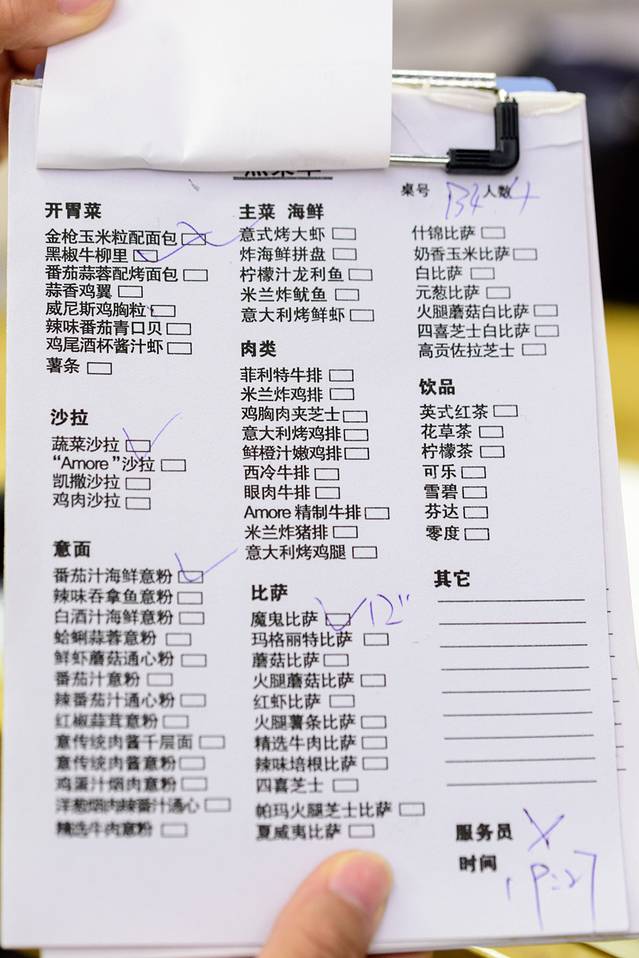 桌号 B4 人数 4
开胃菜
金枪玉米粒配面包
黑椒牛柳里
番茄蒜蓉配烤面包
蒜香鸡翼
威尼斯鸡胸粒
辣味番茄青口贝
鸡尾酒杯酱汁虾
薯条
沙拉
蔬菜沙拉
“Amore”沙拉
凯撒沙拉
鸡肉沙拉
意面
番茄汁海鲜意粉
辣味吞拿鱼意粉
白酒汁海鲜意粉
蛤蜊蒜蓉意粉
鲜虾蘑菇通心粉
番茄汁意粉
辣番茄汁通心粉
红椒蒜茸意粉
意传统肉酱千层面
意传统肉酱意粉
鸡蛋汁烟肉意粉
洋葱烟肉辣番汁通心
精选牛肉意粉
主菜 海鲜
意式烤大虾
炸海鲜拼盘
柠檬汁龙利鱼
米兰炸鱿鱼
意大利烤鲜虾
肉类
菲利特牛排
米兰炸鸡排
鸡胸肉夹芝士
意大利烤鸡排
鲜橙汁嫩鸡排
西冷牛排
眼肉牛排
Amore 精制牛排
米兰炸猪排
意大利烤鸡腿
比萨
魔鬼比萨 12"
玛格丽特比萨
蘑菇比萨
火腿蘑菇比萨
红虾比萨
火腿薯条比萨
精选牛肉比萨
辣味培根比萨
四喜芝士
帕玛火腿芝士比萨
夏威夷比萨
什锦比萨
奶香玉米比萨
白比萨
元葱比萨
火腿蘑菇白比萨
四喜芝士白比萨
高贡佐拉芝士
饮品
英式红茶
花草茶
柠檬茶
可乐
雪碧
芬达
零度
其它
服务员
时间